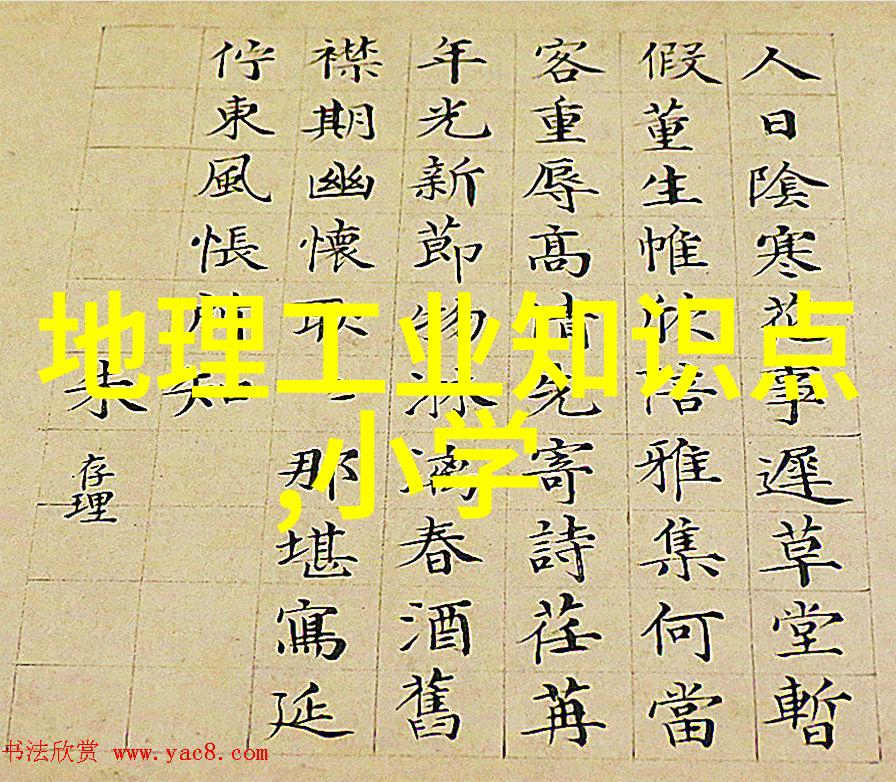 人日陰寒花事遲草堂暫
假董生帷欣悟雅集何當
客重辱高情先寄詩荏苒
年光新節物淋漓春酒舊
襟期幽懷耿那堪寫延
佇東風悵知
未
存理
地理工业知识点
,小学
书法欣赏 www.yac8.com